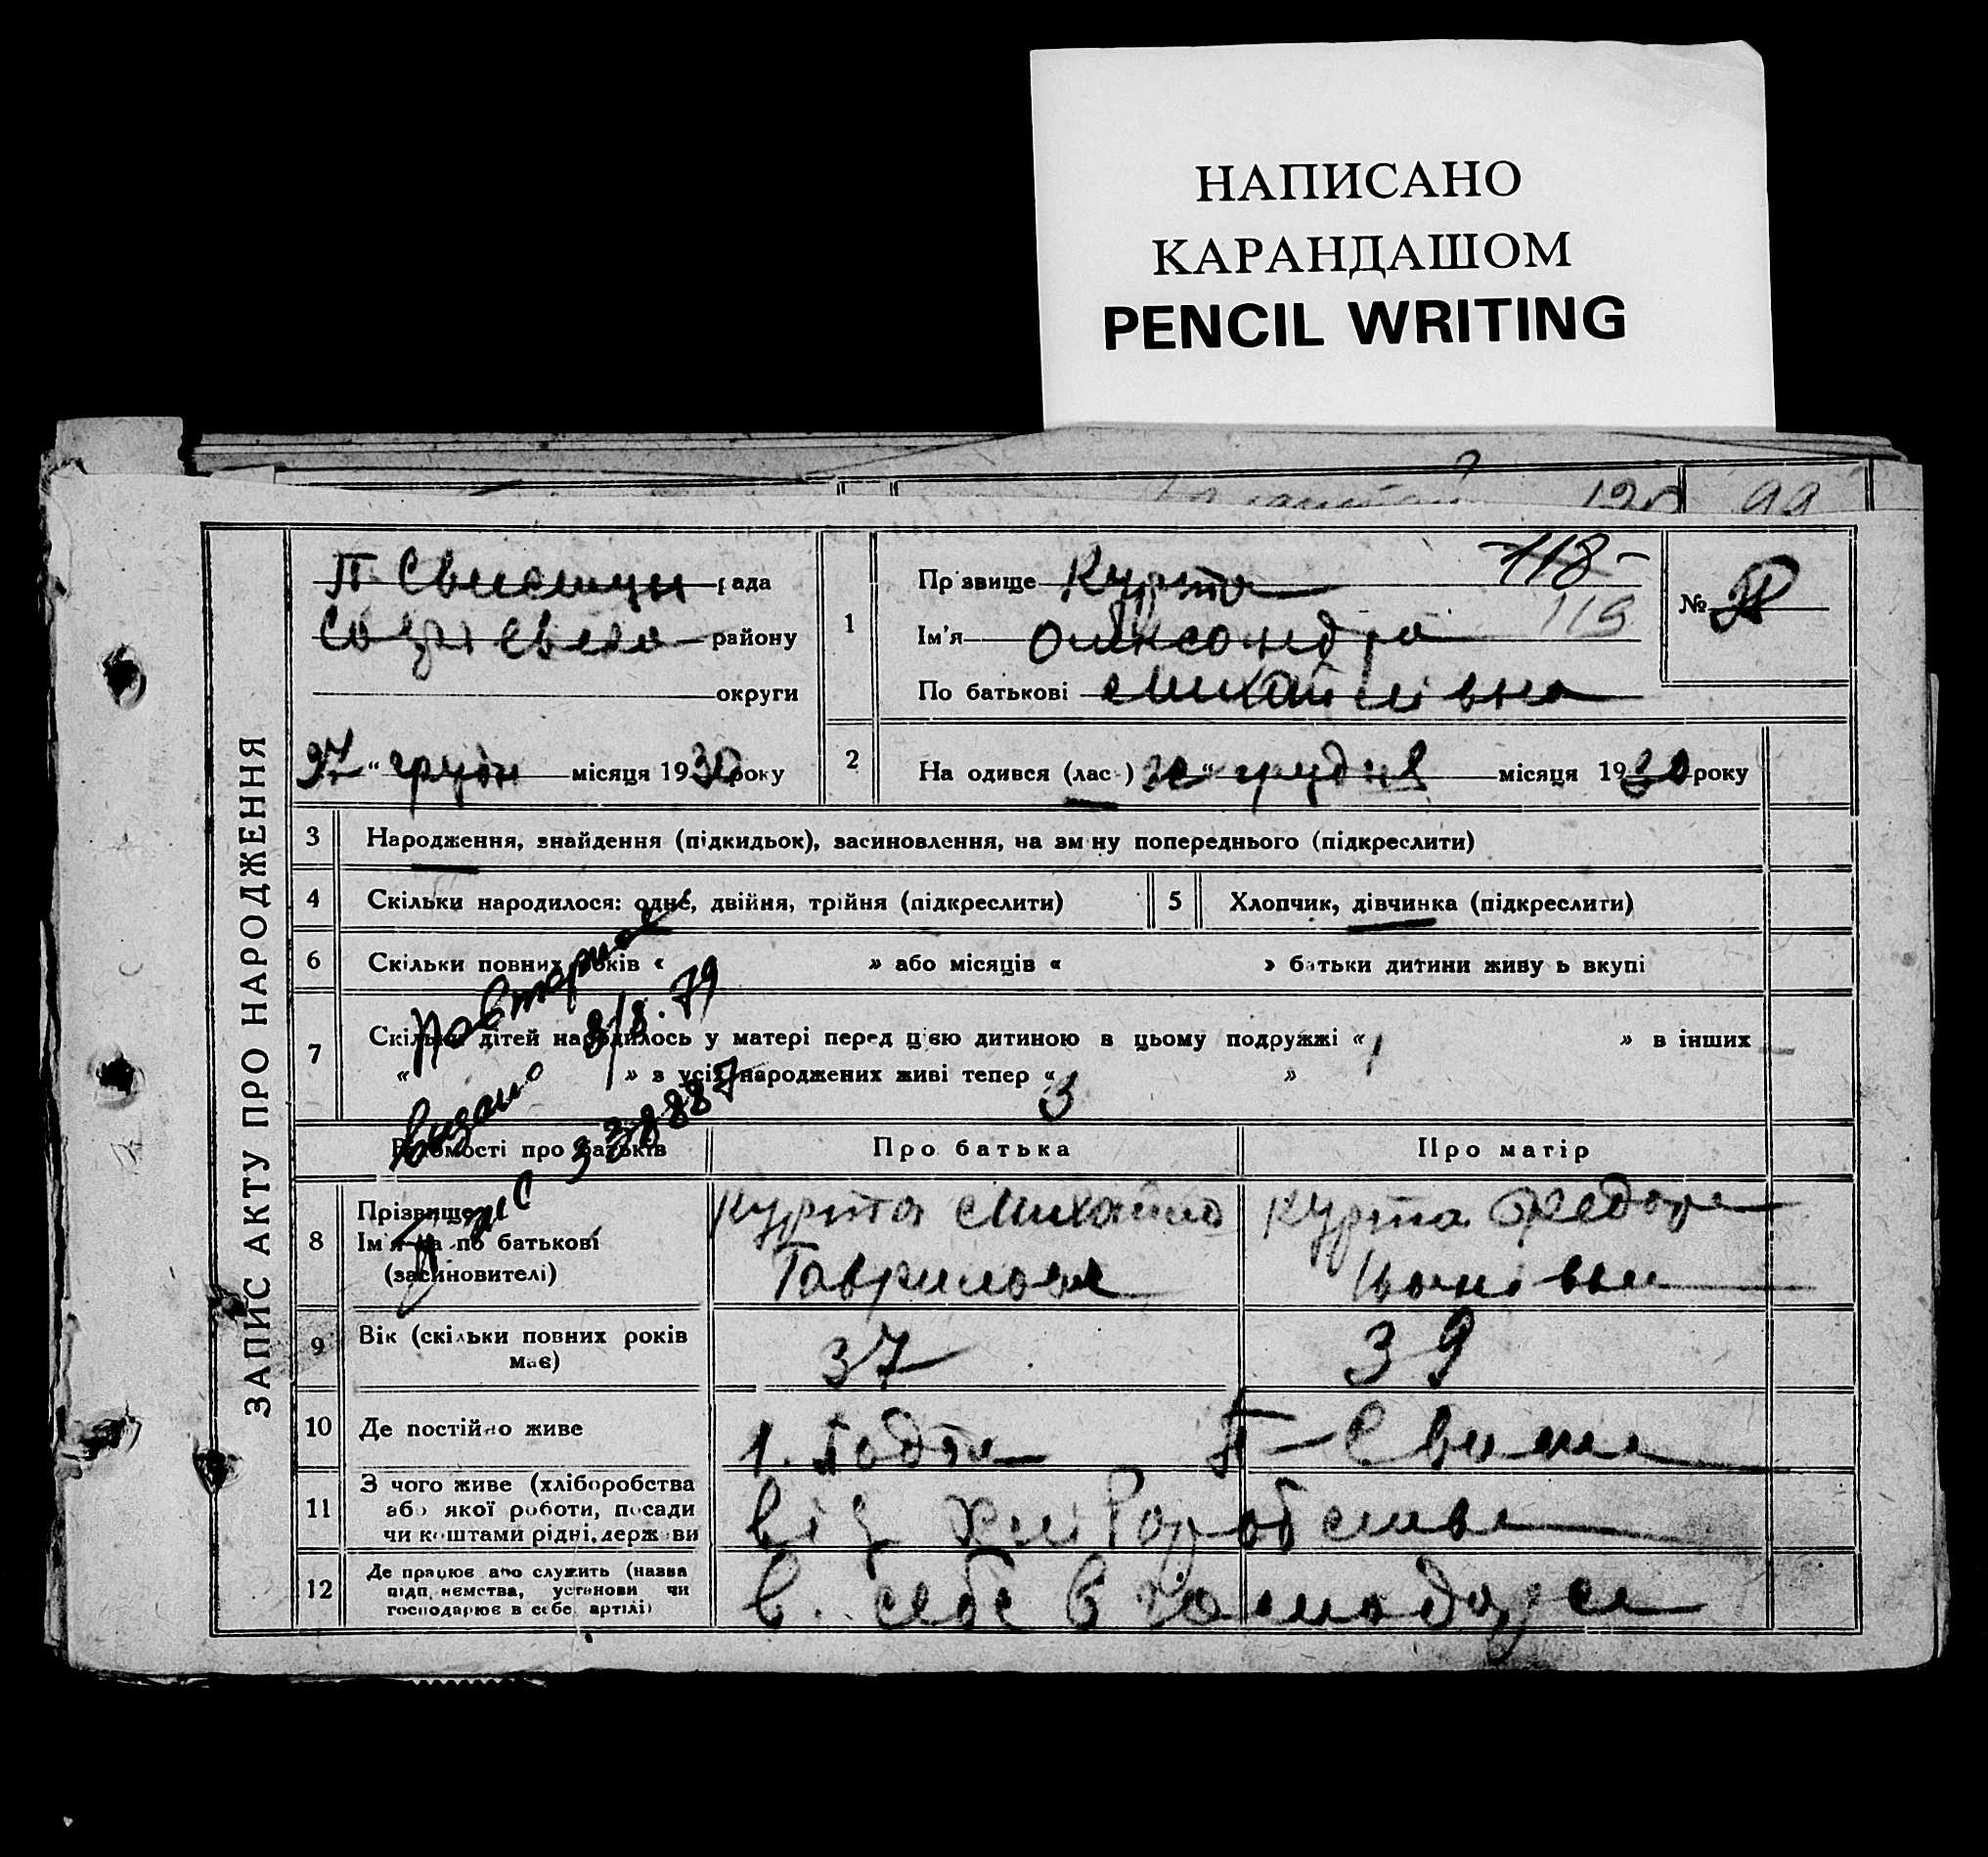 НАПИСАНО
КАРАНДАШОМ
PENCIL WRITING
120 99
ЗАПИС АКТУ ПРО НАРОДЖЕННЯ
П. Свистун рада
району
округи
27 " грудн місяця 1930 року
1
Пр звище Курта -118-
Ім'я Олександра 119
По батькові Михайлівна
№
2 На одився (лас ) " грудня місяця 1930 року
3 Народження, знайдення (підкидьок), засиновлення, на зм ну попереднього (підкреслити)
4 Скільки народилося: одне, двійня, трійня (підкреслити) 5 Хлопчик, дівчинка (підкреслити)
6 Скільки повних років « » або місяців « » батьки дитини живу ь вкупі
7 Скільки дітей народилось у матері перед цією дитиною в цьому подружжі « 1 » в інших
« » з усіх народжених живі тепер « 3 »
Повторное
8/8.79
Видано
Відомості про батьків Про батька Про матір
8 Прізвище
Ім'я та по батькові
(засиновителі)
Курта Михайло
Гаврилови
Курта Федора
Іванівна
9 Вік (скільки повних років
має)
37 39
10 Де постійно живе П-Свист
11 З чого живе (хліборобства
або якої роботи, посади
чи коштами рідні, держ ви
від хліборобства
12 Де працює або служить (назва
підп иємства, установи чи
господарює в себе, артілі)
в. себе в господарст